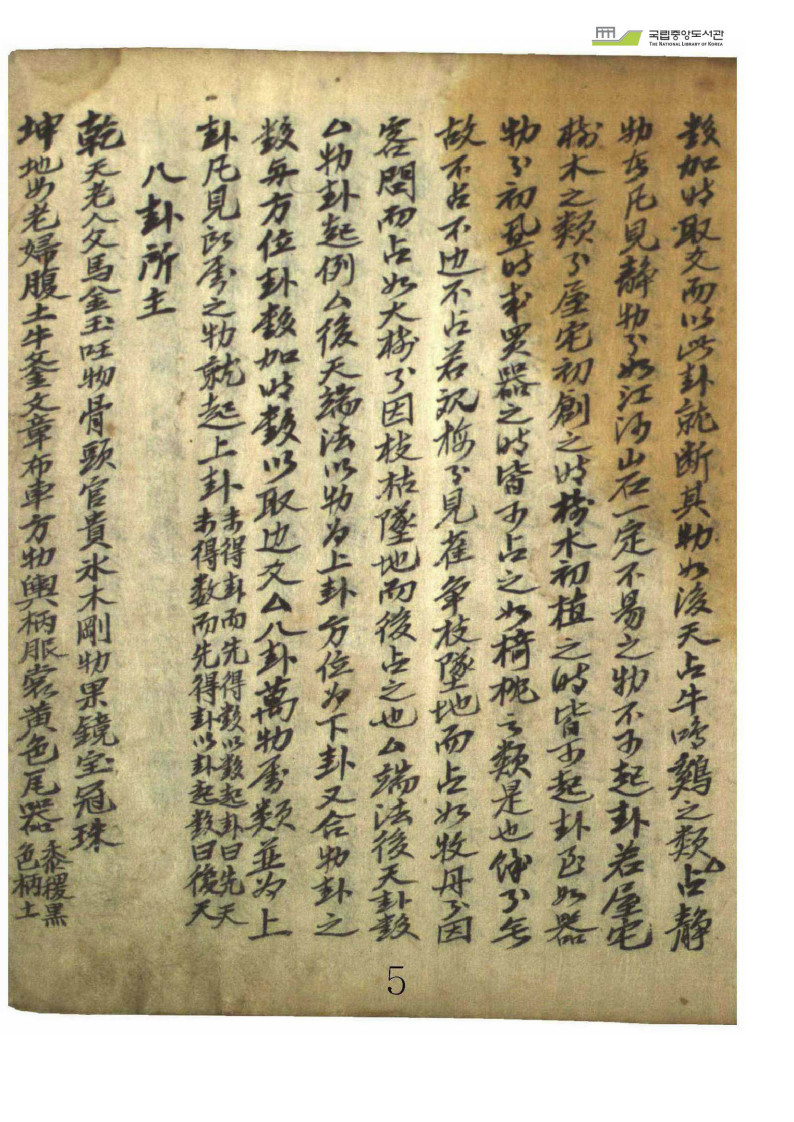 국립중앙도서관
THE NATIONAL LIBRARY OF KOREA
數加时取爻而以此卦就断其物如後天占牛鳴鷄之類占静
物者凡見静物了如江河山石一定不易之物不可起卦若屋宅
樹木之類了屋宅初創之时樹木初植之时皆可起卦至如器
物了初置时或買器之时皆可占之如椅枕之類是也餘了無
故不占不边不占若观梅了見雀争枝墜地而占如牧丹了因
客問而占如大樹了因枝枯墜地而後占之也厶端法後天卦数
厶物卦起例厶後天端法以物为上卦方位为下卦又合物卦之
数每方位卦数加时数以取边爻厶八卦萬物属類並为上
卦凡見所属之物就起上卦未得卦而先得数以数起卦曰先天
未得数而先得卦以卦起数曰後天
八卦所主
乾天老人父馬金玉旺物骨頭官貴氷木剛物果鏡宝冠珠
坤地如老婦腹土牛釜文章布車方物輿柄服裳黄色瓦器黍稷黒
色柄土
5